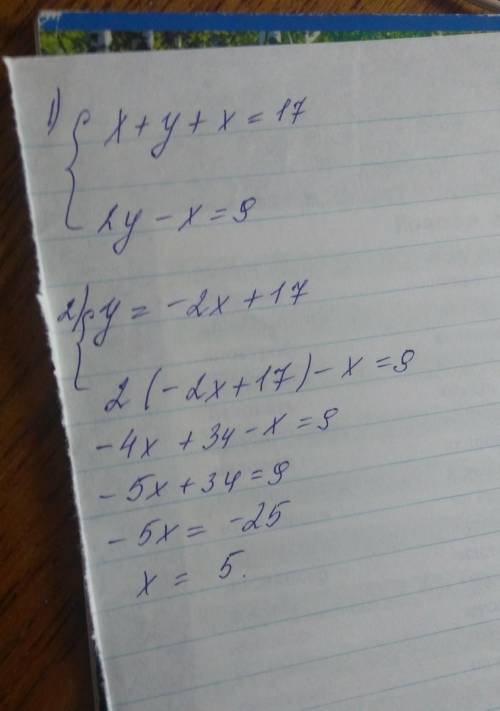 1) { x + y + x = 17
2y - x = 9
2) { y = -2x + 17
2 (-2x + 17) - x = 9
-4x + 34 - x = 9
-5x + 34 = 9
-5x = -25
x = 5.